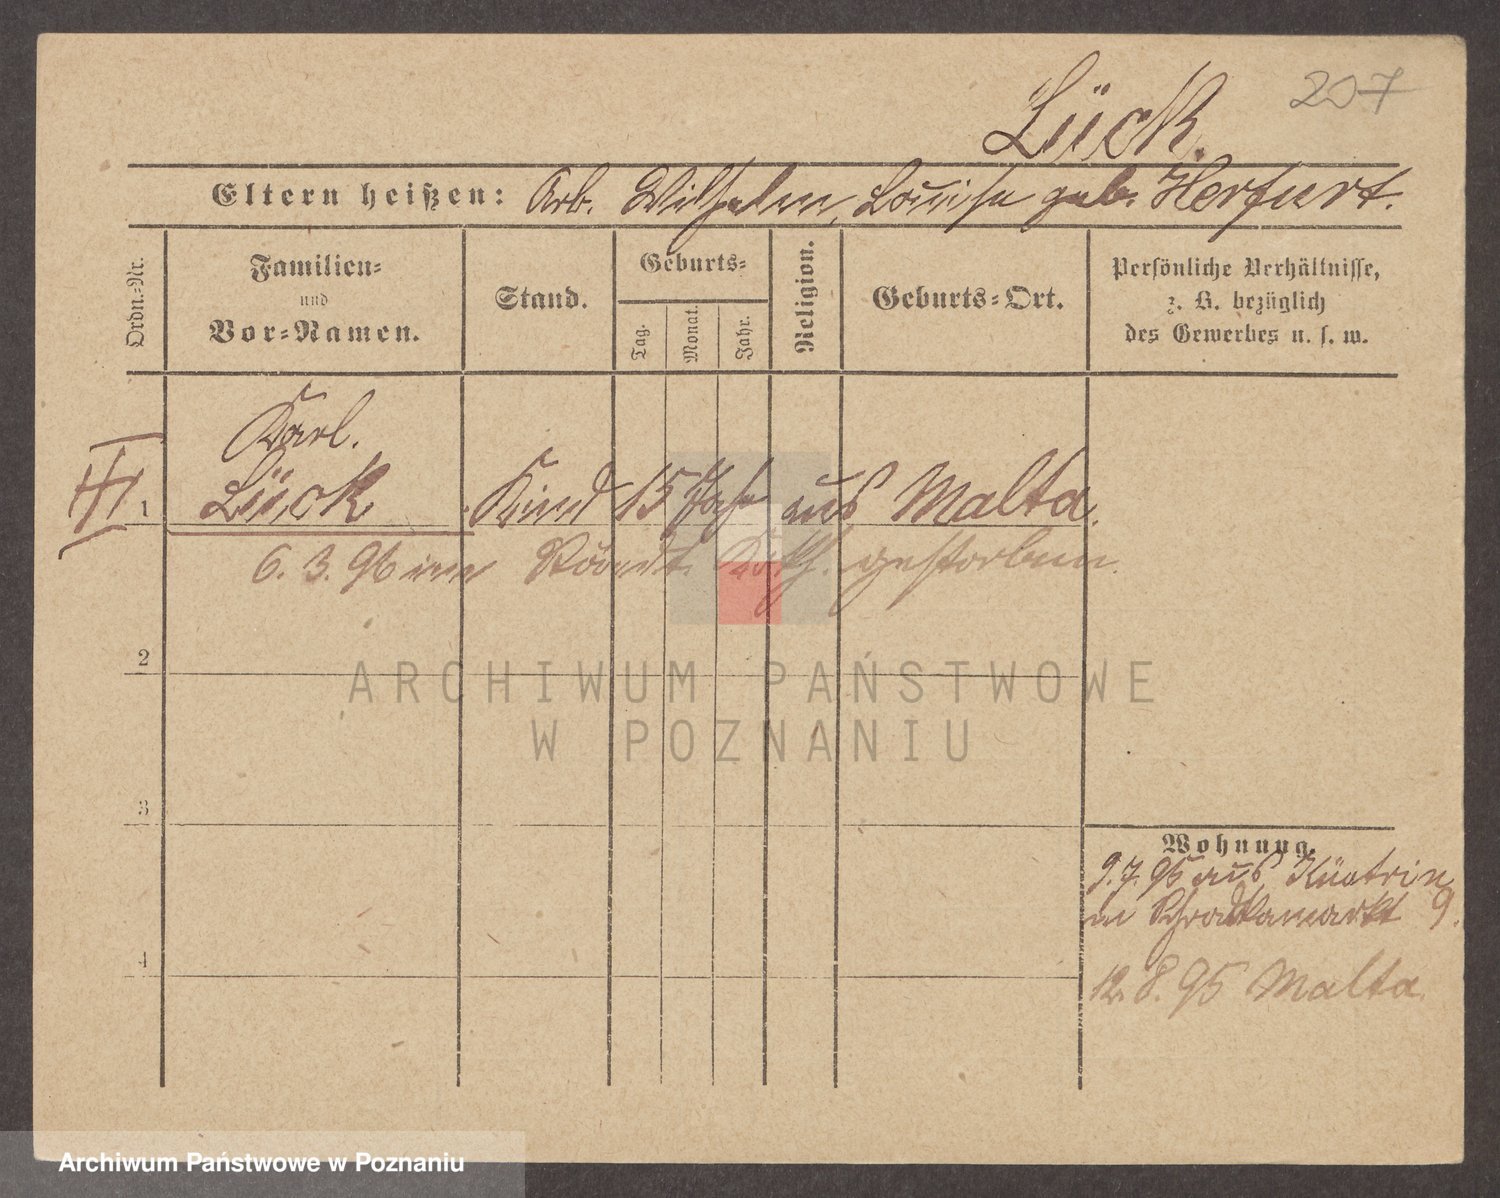 207
Lück.
Eltern heißen: Arb. Wilhelm, Louise geb. Herfurt.
Ordn.=Nr.
Familien=
und
Vor=Namen.
Stand.
Geburts=
Tag.
Monat.
Jahr.
Religion.
Geburts=Ort.
Persönliche Verhältnisse,
z. B. bezüglich
des Gewerbes u. s. w.
Karl.
1 Lück Kind 15 Jahr aus Malta.
6. 3. 96 im Stadt. gestorben.
2
3
4
ARCHIWUM PAŃSTWOWE
W POZNANIU
Wohnung.
9. 7. 95 aus Küstrin
9.
12. 8. 95 Malta.
Archiwum Państwowe w Poznaniu